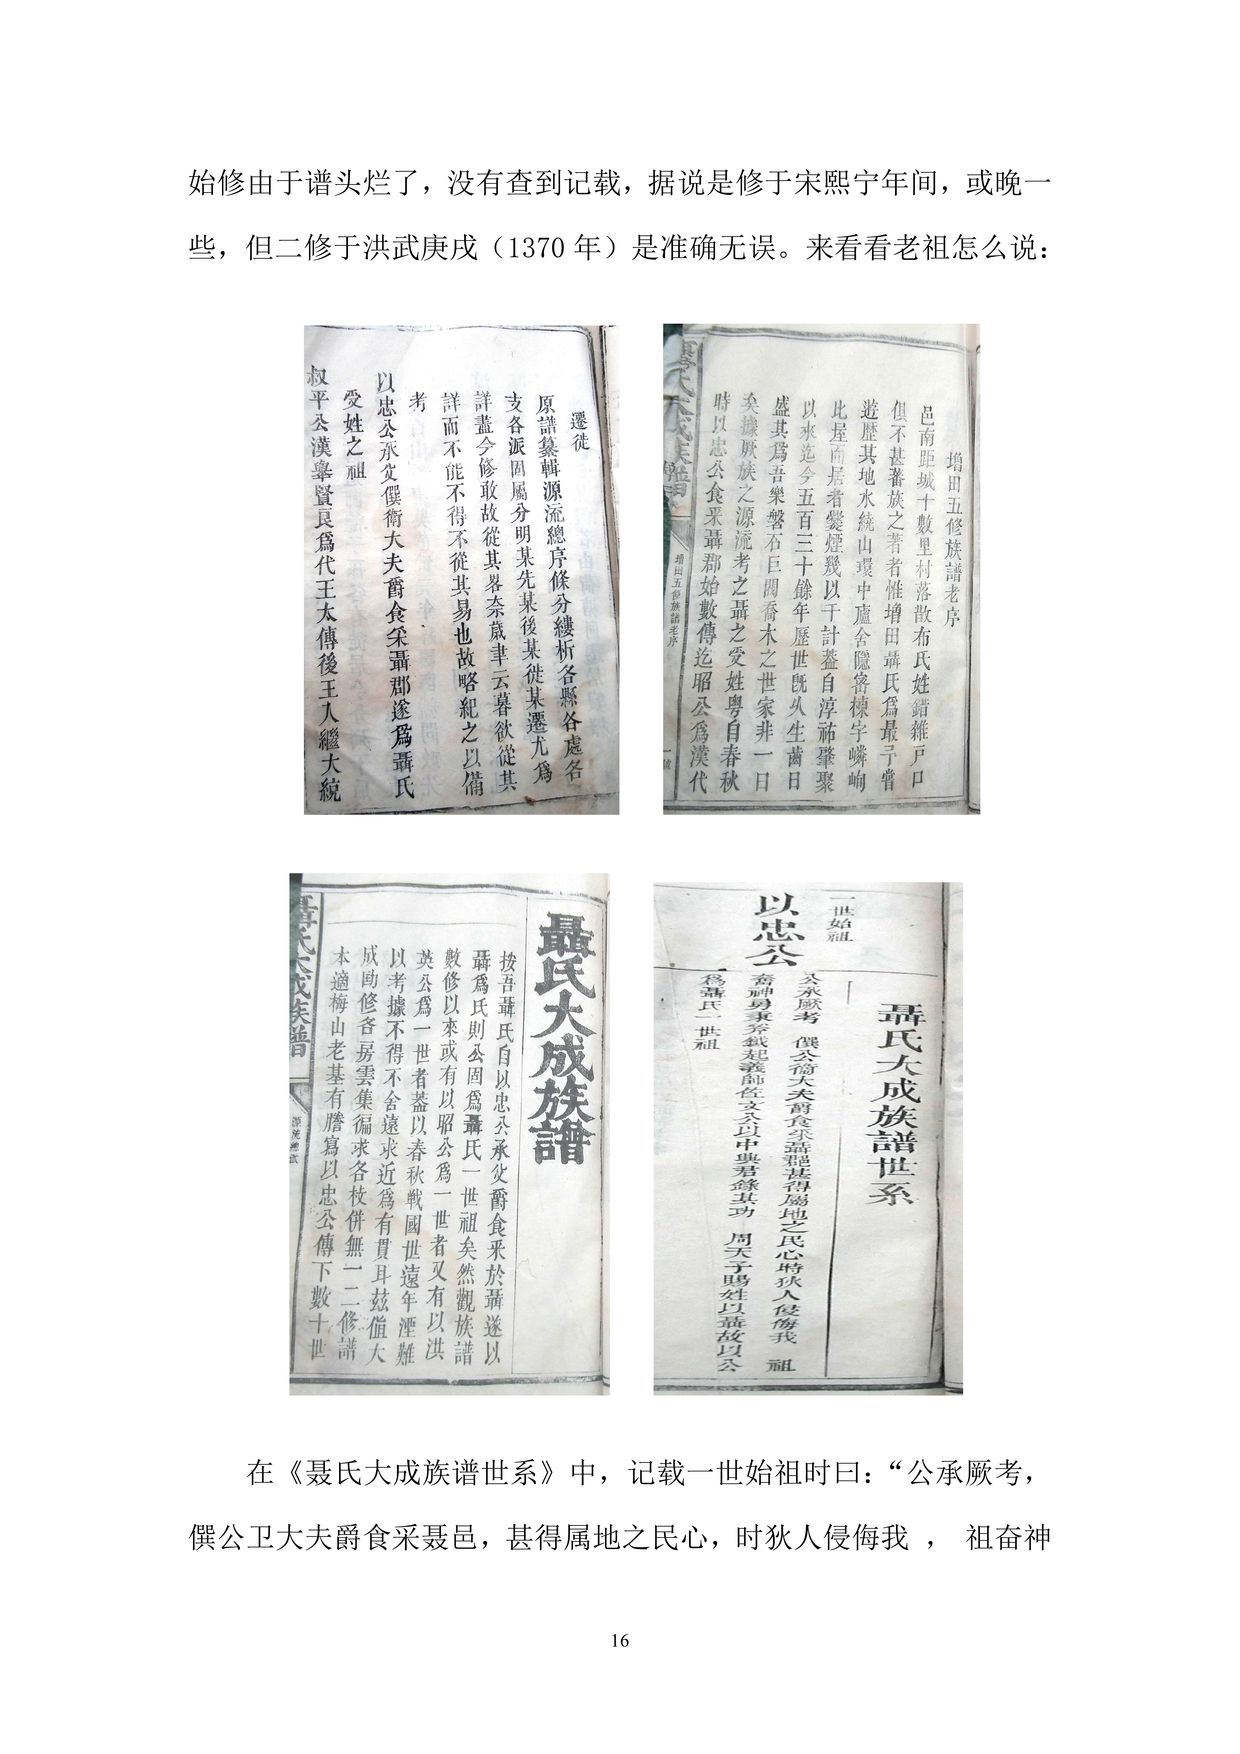 始修由于谱头烂了，没有查到记载，据说是修于宋熙宁年间，或晚一
些，但二修于洪武庚戌（1370 年）是准确无误。来看看老祖怎么说：
遷徙
原譜纂輯源流總序條分縷析各縣各處各
支各派固屬分明某先某後某徙某遷尤爲
詳盡今修敢故從其畧奈歲聿云暮欲從其
詳而不能不得不從其易也故略紀之以備
考
以忠公承父僎衛大夫爵食采聶郡遂爲聶氏
受姓之祖
叔平公漢舉賢良爲代王太傅後王入繼大統
增田五修族譜老序
邑南距城十數里村落散布氏姓錯雜戸口
俱不甚蕃族之著者惟增田聶氏爲最予嘗
遊歷其地水繞山環中廬舍隱密棟宇嶙峋
比屋而居者爨煙幾以千計葢自淳祐肇聚
以來迄今五百三十餘年歷世既久生齒日
盛其爲吾樂磐石巨閥喬木之世家非一日
矣據厥族之源流考之聶之受姓粵自春秋
時以忠公食采聶郡始數傳迄昭公爲漢代
聶氏大成族譜
增田五修族譜老序
聶氏大成族譜
按吾聶氏自以忠公承父爵食采於聶遂以
聶爲氏則公固爲聶氏一世祖矣然觀族譜
數修以來或有以昭公爲一世者又有以洪
英公爲一世者葢以春秋戰國世遠年湮難
以考據不得不舍遠求近爲有貫耳茲值大
成勛修各房雲集徧求各枝併無一二修譜
本適梅山老基有謄寫以忠公傳下數十世
聶氏大成族譜
聶氏大成族譜世系
一世始祖
以忠公
公承厥考　僎公衛大夫爵食采聶郡甚得屬地之民心時狄人侵侮我　祖
奮神勇秉斧鉞起義師佐文公以中興君錄其功　周天子賜姓以聶故以公
爲聶氏一世祖
在《聂氏大成族谱世系》中，记载一世始祖时曰：“公承厥考，
僎公卫大夫爵食采聂邑，甚得属地之民心，时狄人侵侮我 ， 祖奋神
16